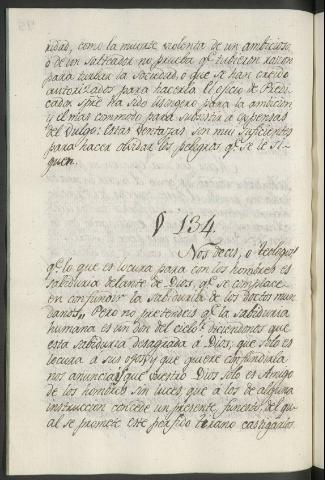 ridad, como la muerte violenta de un ambicioso,
o de un salteador no prueba qe. tubieron razon
para turbar la Sociedad, o que se han creido
autorizados para hacerla. El oficio de Predi-
cador spre ha sido lisongero para la ambicion
y el mas commodo para subsistir a expensas
del vulgo: estas ventajas son mui suficientes
para hacer olvidar los peligros qe. se le si-
guen.
§ 134.
Nos decis, o teologos
qe. lo que es locura para con los hombres es
sabiduria delante de Dios, qe. se complace
en confundir la sabiduria de los doctos mun
danos, Pero no pretendeis qe. la sabiduria
humana es un don del cielo? diciendonos que
esta sabiduria desagrada a Dios, que solo es
locura a sus ojos, y que quiere confundirla
nos anunciais que vuestro Dios solo es Amigo
de los hombres sin luces, que à los de alguna
instruccion concede un presente funesto, del qu-
al se promete este perfido tirano castigarlos